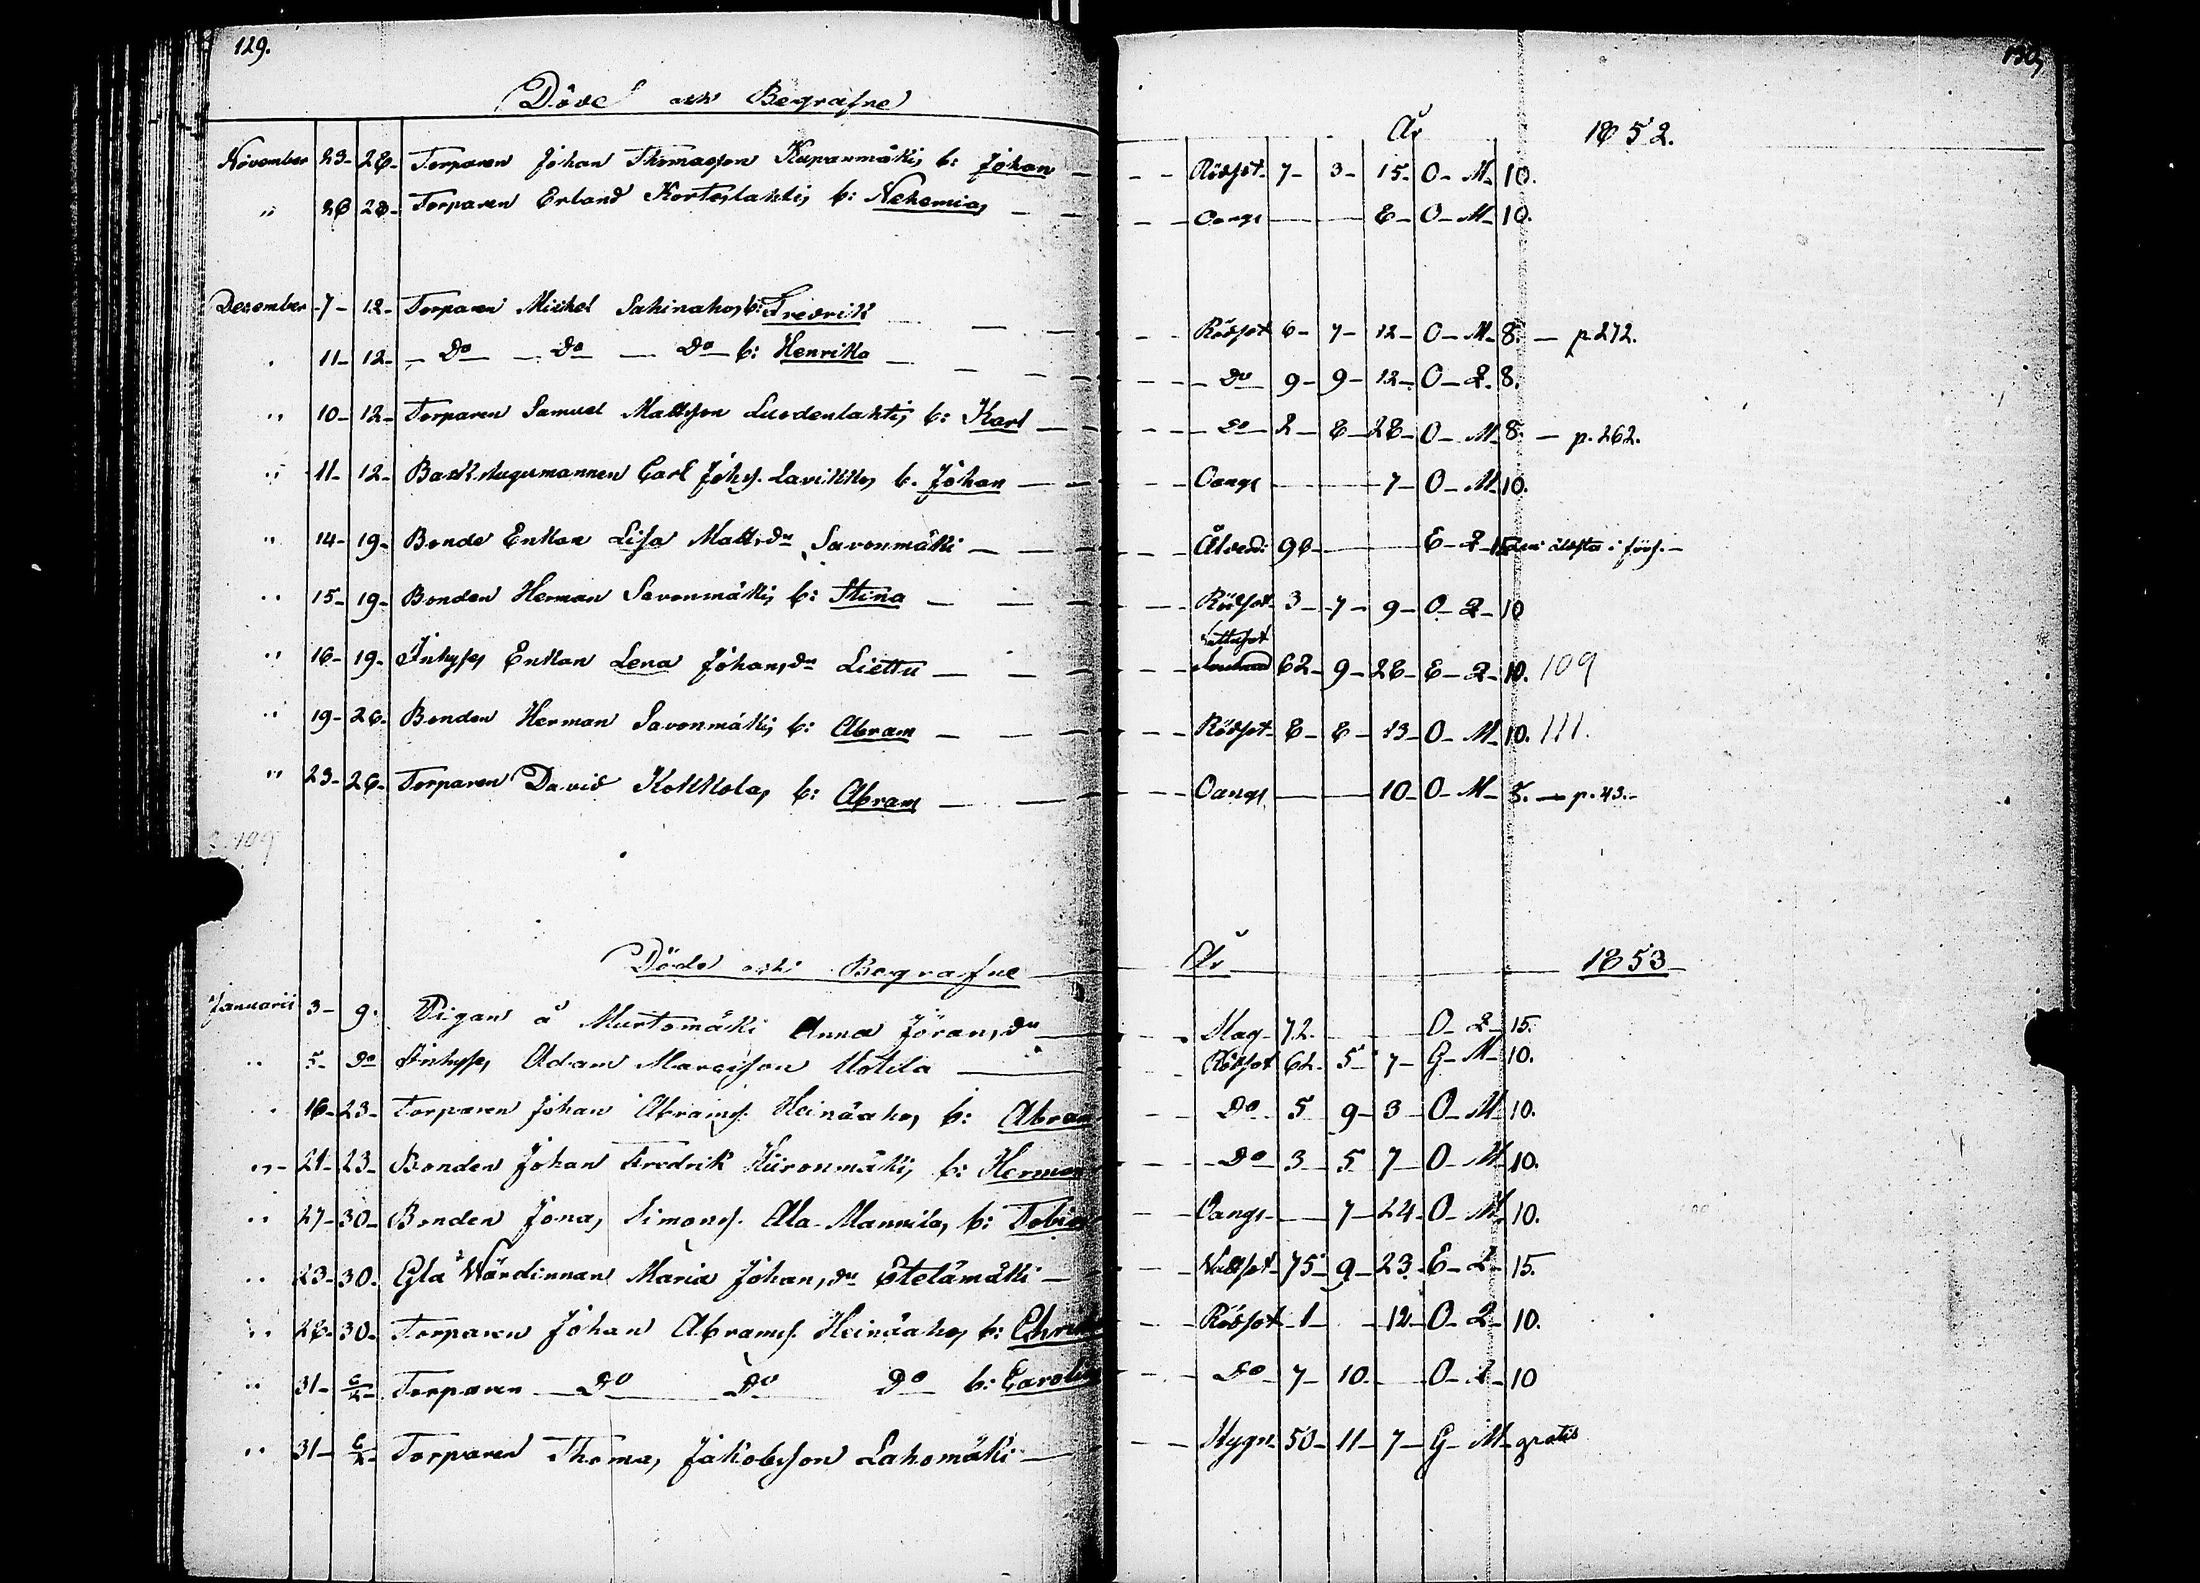 129.
130,
Döde och Begrafne År 1852.
November 23- 28- Torparen Johan Thomasson Kuparmäki, b: Johan - Rödsot- 7- 3- 15- O- M- 10.
" 26 28- Torparen Erland Korteslahti, b: Nehemias - Oangs 8- O- M- 10.
December 7- 12- Torparen Michel Sahinaho, b: Fredrik - Rödsot 6- 7- 12- O- M- 8. - p. 272.
" 11- 12- Do Do Do b: Henrika - Do 9- 9- 12- O- Q- 8.
" 10- 12- Torparen Samuel Mattsson Luodenlahti, b: Karl - Do 2- 8- 28- O- M- 8. - p. 262.
" 11- 12- Backstugumannen Carl Johs. Lavikko, b. Johan - Oangs 7- O- M- 10.
" 14- 19- Bonde Enkan Lisa Matts dr Savonmäki - Ålderd. 96- E- Q- 15 den äldsta i förs. -
" 15- 19- Bonden Herman Savonmäki, b: Stina - Rödsot- 3- 7- 9- O- Q- 10
" 16- 19- Inhyses Enkan Lena Johans dr Liettu - 62- 9- 28- E- Q- 10. 109
" 19- 26- Bonden Herman Savonmäki, b: Abram - Rödsot- 8- 8- 13- O- M- 10. 111.
" 23- 26- Torparen David Kokkola, b: Abram - Oangs 10- O- M- 8. - p. 43. -
Döde och Begrafne År 1853
Januarii 3- 9. Pigan å Murtomäki Anna Jörans dr - Slag- 72. O- Q- 15.
" 5- Do Inhyses Adam Marcisson Uotila - Rödsot 62- 5- 7- G- M- 10.
" 16- 23- Torparen Johan Abrams. Heinäaho, b: Abram - Do 5 9- 3- O- M- 10.
" 21- 23- Bonden Johan Fredrik Hiironmäki, b: Herman - Do 3- 5 7- O- M- 10.
" 27- 30- Bonden Jonas Simons. Ala-Mannila, b: Tobias - Oangs- 7- 24- O- M- 10.
" 23- 30- Gla Wärdinnan Maria Johans dr Etelämäki - Wattsot- 75- 9- 23- E- Q- 15.
" 28- 30- Torparen Johan Abrams. Heinäaho, b: - Rödsot 1- 12- O- Q- 10.
" 31- 6/2- Torparen Do Do Do b: Carolina - Do 7- 10- O- Q- 10
" 31- 6/2- Torparen Thomas Jakobsson Lahomäki - 50- 11- 7- G- M- gratis